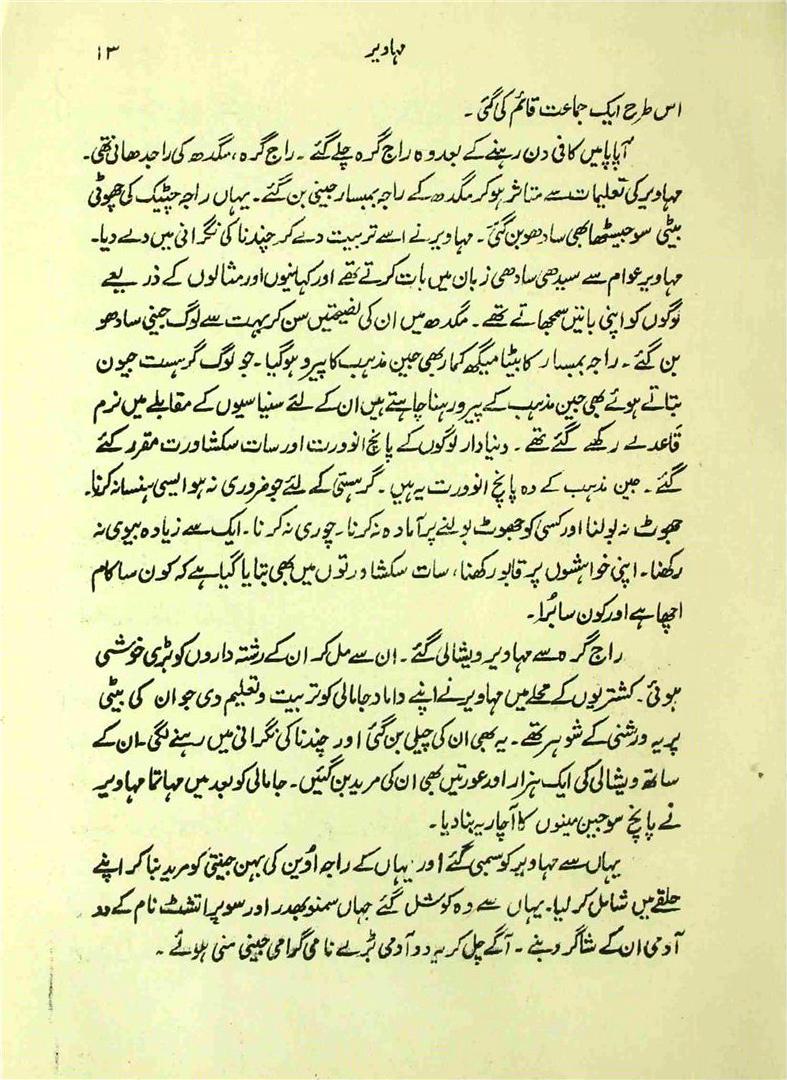 مہاویر ۱۳
اس طرح ایک جماعت قائم کی گئی ۔
آپاپا میں کافی دن رہنے کے بعد وہ راج گرہ چلے گئے ۔ راج گرہ، مگدھ کی راجدھانی تھی ۔
مہاویر کی تعلیمات سے متاثر ہو کر مگدھ کے راجہ بمبسار جینی بن گئے ۔ یہاں راجہ چٹیک کی چھوٹی
بیٹی سوجیسٹھا بھی سادھو بن گئی ۔ مہاویر نے اسے تربیت دے کر چندنا کی نگرانی میں دے دیا ۔
مہاویر عوام سے سیدھی سادھی زبان میں بات کرتے تھے اور کہانیوں اور مثالوں کے ذریعے
لوگوں کو اپنی باتیں سمجھاتے تھے ۔ مگدھ میں ان کی نصیحتیں سن کر بہت سے لوگ جینی سادھو
بن گئے ۔ راجہ بمبسار کا بیٹا میگھ کمار بھی جین مذہب کا پیرو ہو گیا ۔ جو لوگ گرہست جیون
بتاتے ہوئے بھی جین مذہب کے پیرو رہنا چاہتے ہیں ان کے لئے سنیاسیوں کے مقابلے میں نرم
قاعدے رکھے گئے تھے ۔ دنیادار لوگوں کے پانچ انوورت اور سات سکشاورت مقرر کئے
گئے ۔ جین مذہب کے وہ پانچ انوورت یہ ہیں ۔ گرہستی کے لئے جو ضروری نہ ہو ایسی ہنسا نہ کرنا ۔
جھوٹ نہ بولنا اور کسی کو جھوٹ بولنے پر آمادہ نہ کرنا ۔ چوری نہ کرنا ۔ ایک سے زیادہ بیوی نہ
رکھنا ۔ اپنی خواہشوں پر قابو رکھنا، سات سکشاورتوں میں بھی بتایا گیا ہے کہ کون سا کام
اچھا ہے اور کون سا بُرا ۔
راج گرہ سے مہاویر ویشالی گئے ۔ ان سے مل کر ان کے رشتہ داروں کو بڑی خوشی
ہوئی ۔ کشتریوں کے محلے میں مہاویر نے اپنے داماد جامالی کو تربیت و تعلیم دی جو ان کی بیٹی
پریہ درشنی کے شوہر تھے ۔ یہ بھی ان کی چیلی بن گئی اور چندنا کی نگرانی میں رہنے لگی ۔ ان کے
ساتھ ویشالی کی ایک ہزار اور عورتیں بھی ان کی مرید بن گئیں ۔ جامالی کو بعد میں مہاتما مہاویر
نے پانچ سو جین مینوں کا آچاریہ بنا دیا ۔
یہاں سے مہاویر کوسمبی گئے اور یہاں کے راجہ اوُدین کی بہن جینتی کو مرید بنا کر اپنے
حلقے میں شامل کر لیا ۔ یہاں سے وہ کوشل گئے جہاں سمنوبھدر اور سوپراتشٹ نام کے دو
آدمی ان کے شاگرد بنے ۔ آگے چل کر یہ دو آدمی بڑے نامی گرامی جینی منی ہوئے ۔